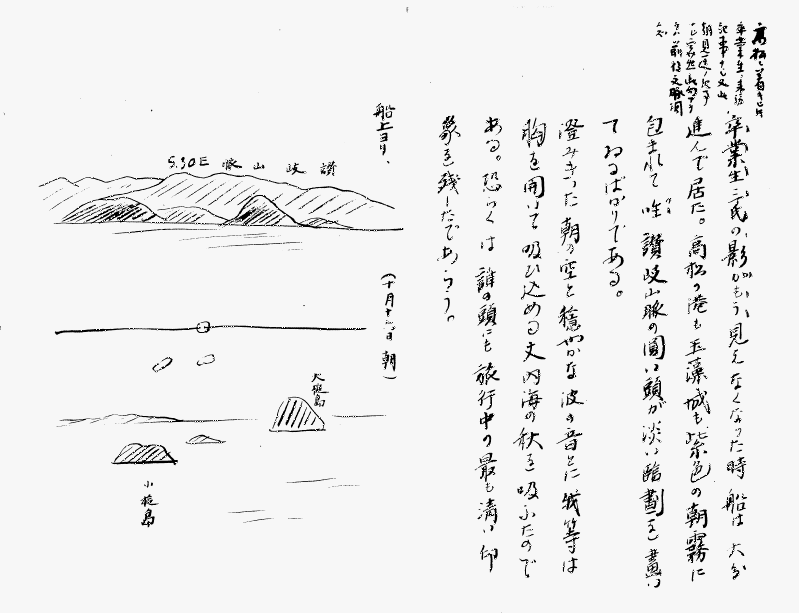 高松に着きし時
卒業生
朝見送
卒業生三氏の影がもう見えなくなった時船は大分
進んで居た。高松の港も玉藻城も紫色の朝霧に
包まれて唯讃岐山脈の圓い頭が淡い輪劃を畫い
てゐるばかりである。
澄みきった朝の空と穏かな波の音とに我等は
胸を開いて吸ひ込める丈内海の秋を吸ふたので
ある。恐らくは誰の頭にも旅行中の最も清い印
象を残したであらう。
(十月十六日 朝)
船上ヨリ、
讃岐山脈 S.30E
大槌島
小槌島